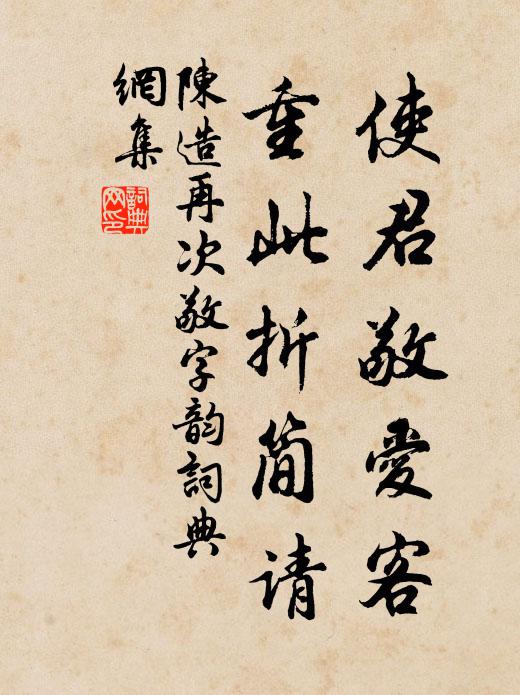 使君敬愛客
重此折简请
陳造再次敬字韵詞典
網集
詞典
网印